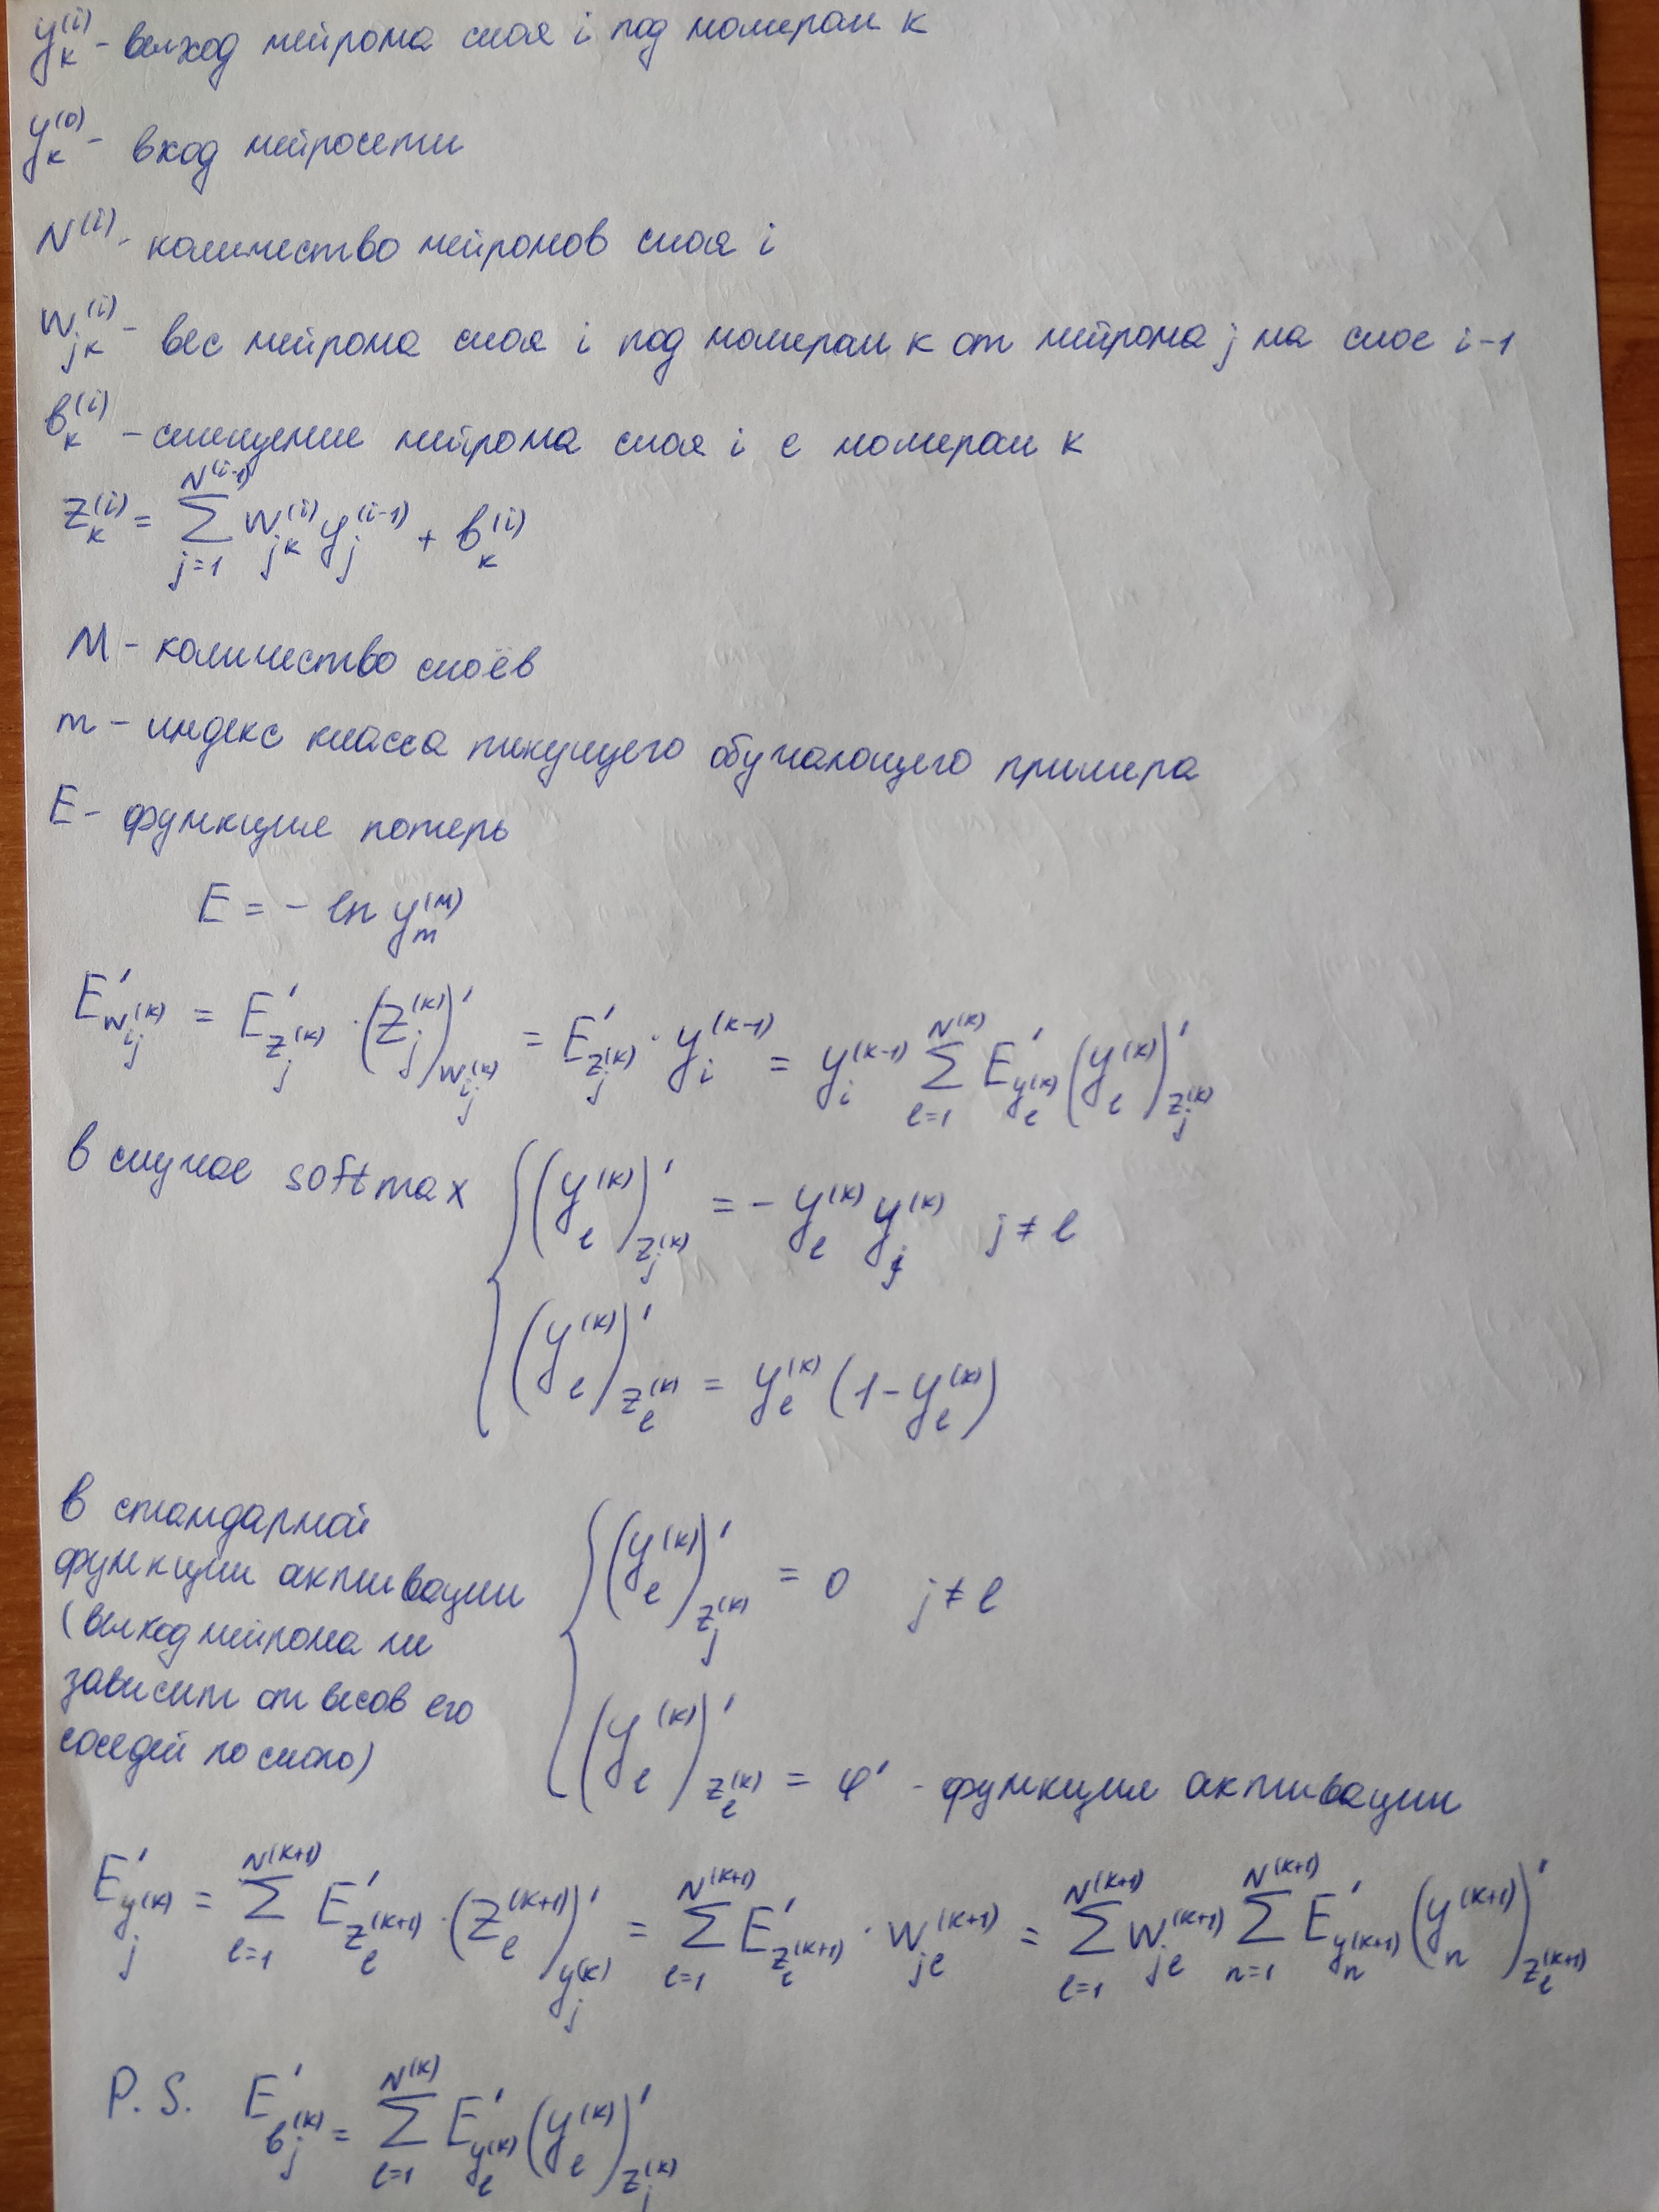 y_k^(i) - выход нейрона слоя i под номером k
y_k^(0) - вход нейросети
N^(i) - количество нейронов слоя i
w_jk^(i) - вес нейрона слоя i под номером k от нейрона j на слое i-1
b_k^(i) - смещение нейрона слоя i с номером k
z_k^(i) = ∑_{j=1}^{N^(i-1)} w_jk^(i) y_j^(i-1) + b_k^(i)
M - количество слоёв
m - индекс класса текущего обучающего примера
E - функция потерь
E = - ln y_m^(M)
E'_{w_ij^(k)} = E'_{z_j^(k)} · (z_j^(k))'_{w_ij^(k)} = E'_{z_j^(k)} · y_i^(k-1) = y_i^(k-1) ∑_{l=1}^{N^(k)} E'_{y_l^(k)} (y_l^(k))'_{z_j^(k)}
в случае softmax { (y_l^(k))'_{z_j^(k)} = - y_l^(k) y_j^(k) j ≠ l
(y_l^(k))'_{z_l^(k)} = y_l^(k) (1 - y_l^(k))
в стандартной
функции активации
(выход нейрона не
зависит от весов его
соседей по слою)
{ (y_l^(k))'_{z_j^(k)} = 0 j ≠ l
(y_l^(k))'_{z_l^(k)} = φ' - функция активации
E'_{y_j^(k)} = ∑_{l=1}^{N^(k+1)} E'_{z_l^(k+1)} · (z_l^(k+1))'_{y_j^(k)} = ∑_{l=1}^{N^(k+1)} E'_{z_l^(k+1)} · w_jl^(k+1) = ∑_{l=1}^{N^(k+1)} w_jl^(k+1) ∑_{n=1}^{N^(k+1)} E'_{y_n^(k+1)} (y_n^(k+1))'_{z_l^(k+1)}
P.S. E'_{b_j^(k)} = ∑_{l=1}^{N^(k)} E'_{y_l^(k)} (y_l^(k))'_{z_j^(k)}